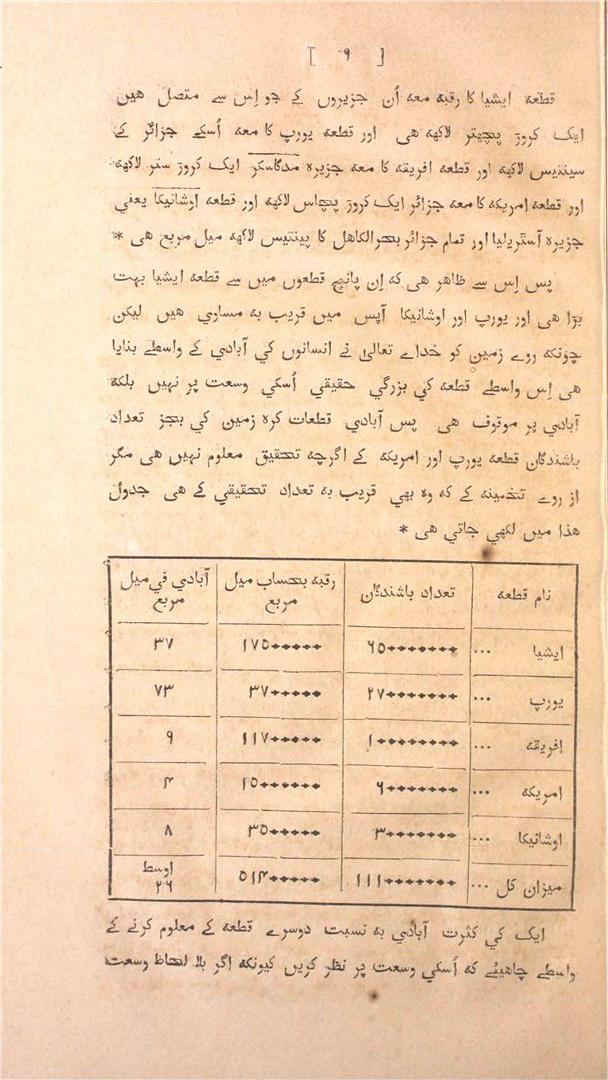 [ ۹ ]
قطعہ ایشیا کا رقبہ معہ اُن جزیروں کے جو اِس سے متصل ھیں
ایک کروڑ پچھتر لاکھہ ھی اور قطعہ یورپ کا معہ اُسکے جزائر کے
سینتیس لاکھہ اور قطعہ افریقہ کا معہ جزیرہ مدگاسکر ایک کروڑ ستر لاکھہ
اور قطعہ امریکہ کا معہ جزائر ایک کروڑ پچاس لاکھہ اور قطعہ اوشانیکا یعنی
جزیرہ آسٹریلیا اور تمام جزائر بحرالکاھل کا پینتیس لاکھہ میل مربع ھی *
پس اِس سے ظاھر ھی کہ اِن پانچ قطعوں میں سے قطعہ ایشیا بہت
بڑا ھی اور یورپ اور اوشانیکا آپس میں قریب بہ مساوی ھیں لیکن
چونکہ روے زمین کو خداے تعالیٰ نے انسانوں کی آبادی کے واسطے بنایا
ھی اِس واسطے قطعہ کی بزرگی حقیقی اُسکی وسعت پر نہیں بلکہ
آبادی پر موقوف ھی پس آبادی قطعات کرہ زمین کی بجز تعداد
باشندگان قطعہ یورپ اور امریکہ کے اگرچہ تحقیق معلوم نہیں ھی مگر
از روے تخمینہ کے کہ وہ بھی قریب بہ تعداد تحقیقی کے ھی جدول
ھذا میں لکھی جاتی ھی *
نام قطعہ تعداد باشندگان رقبہ بحساب میل مربع آبادی فی میل مربع
ایشیا ... ۶۵۰۰۰۰۰۰۰ ۱۷۵۰۰۰۰۰ ۳۷
یورپ ... ۲۷۰۰۰۰۰۰۰ ۳۷۰۰۰۰۰ ۷۳
افریقہ ... ۱۰۰۰۰۰۰۰۰ ۱۱۷۰۰۰۰۰ ۹
امریکہ ... ۶۰۰۰۰۰۰۰ ۱۵۰۰۰۰۰۰ ۴
اوشانیکا ... ۳۰۰۰۰۰۰۰ ۳۵۰۰۰۰۰ ۸
میزان کل ... ۱۱۱۰۰۰۰۰۰۰ ۵۱۴۰۰۰۰۰ اوسط ۲۶
ایک کی کثرت آبادی بہ نسبت دوسرے قطعہ کے معلوم کرنے کے
واسطے چاھیئے کہ اُسکی وسعت پر نظر کریں کیونکہ اگر بلا لحاظ وسعت